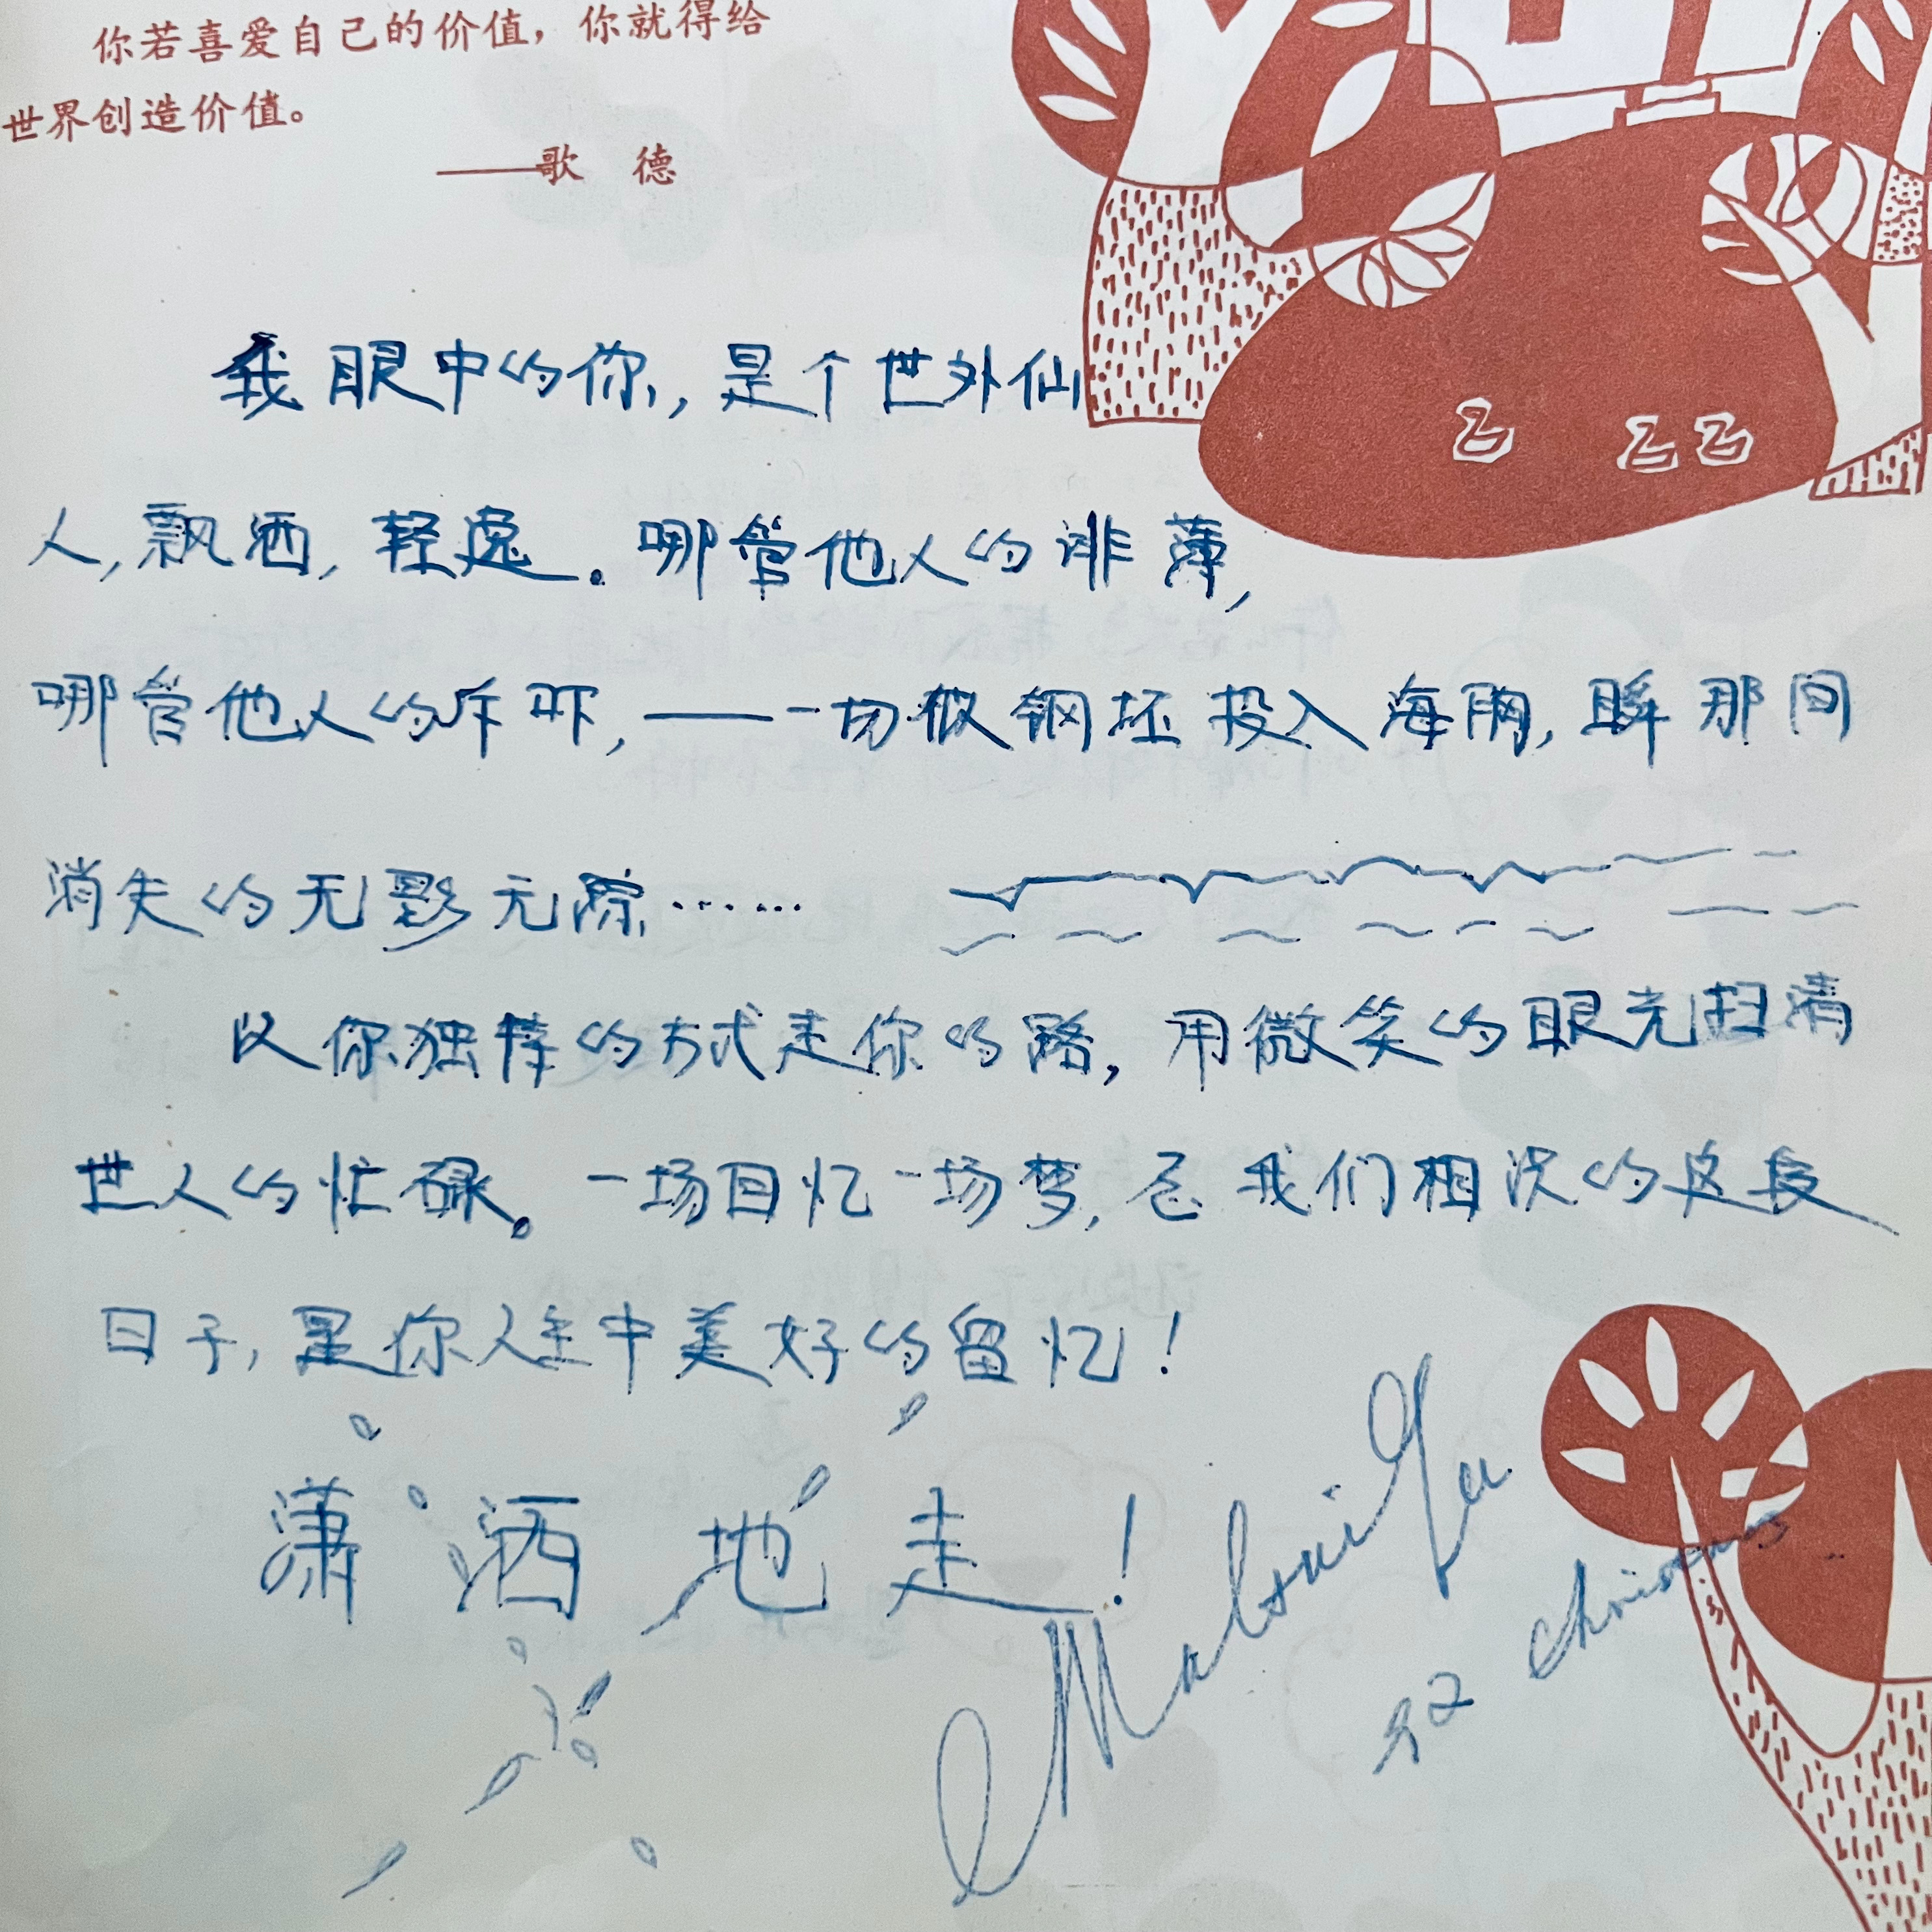 你若喜爱自己的价值，你就得给
世界创造价值。
——歌 德
我眼中的你，是个世外仙
人，飘洒，轻逸。哪管他人的诽薄，
哪管他人的斥吓，——一切似钢坯投入海胸，瞬那间
消失的无影无踪……
以你独特的方式走你的路，用微笑的眼光扫清
世人的忙碌。一场回忆一场梦，愿我们相识的这段
日子，是你人生中美好的留忆！
潇洒地走！
92 Christmas